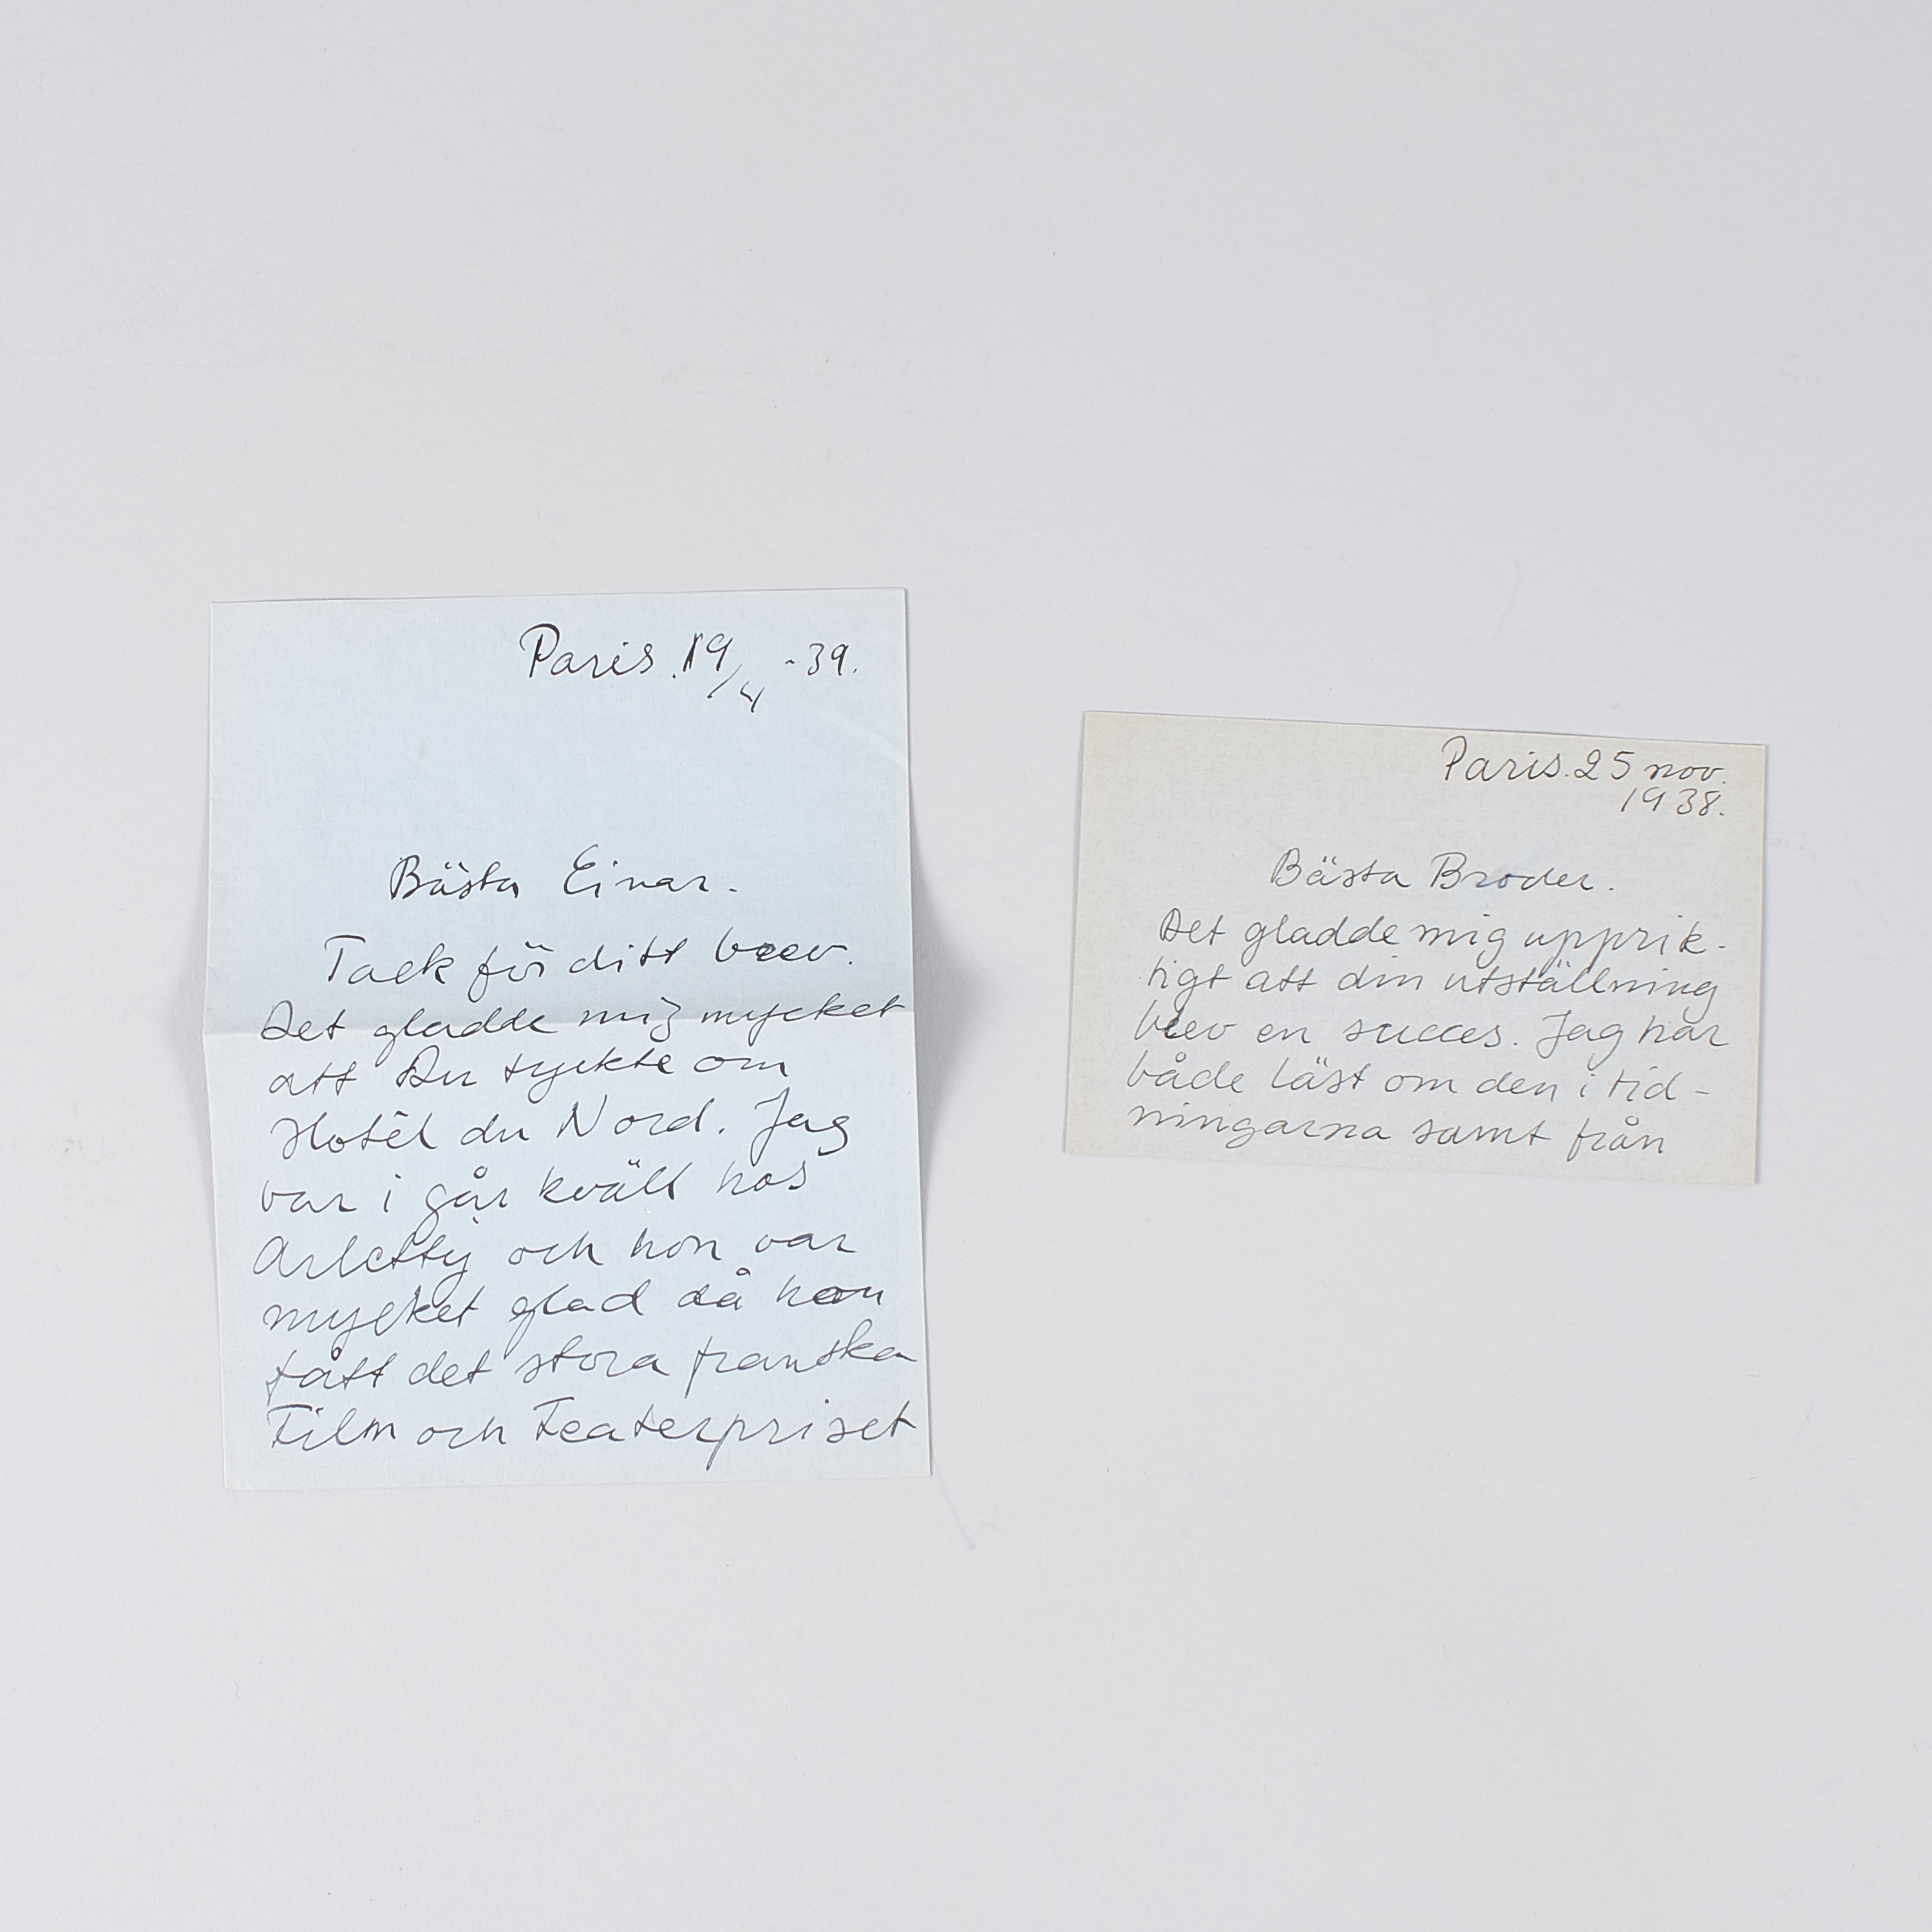 Paris. 19/4 -39.
Bästa Einar.
Tack för ditt brev.
Det gladde mig mycket
att Du tyckte om
Hotêl du Nord. Jag
var i går kväll hos
Arletty och hon var
mycket glad då hon
fått det stora franska
Film och Teaterpriset
Paris. 25 nov.
1938.
Bästa Broder.
Det gladde mig upprik-
tigt att din utställning
blev en succes. Jag har
både läst om den i tid-
ningarna samt från